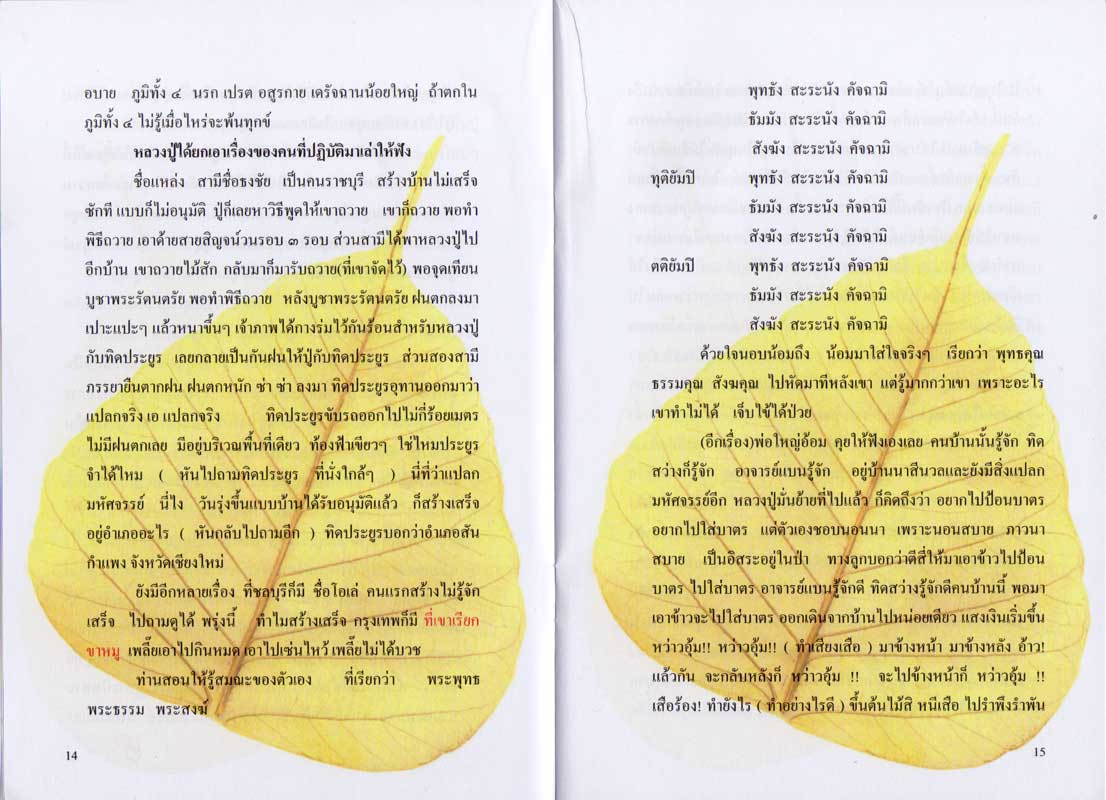 อบาย ภูมิทั้ง ๔ นรก เปรต อสูรกาย เดรัจฉานน้อยใหญ่ ถ้าตกใน
ภูมิทั้ง ๔ ไม่รู้เมื่อไหร่จะพ้นทุกข์
หลวงปู่ได้ยกเอาเรื่องของคนที่ปฏิบัติมาเล่าให้ฟัง
ชื่อแหล่ง สามีชื่อธงชัย เป็นคนราชบุรี สร้างบ้านไม่เสร็จ
ซักที แบบก็ไม่อนุมัติ ปู่ก็เลยหาวิธีพูดให้เขาถวาย เขาก็ถวาย พอทำ
พิธีถวาย เอาด้ายสายสิญจน์วนรอบ ๓ รอบ ส่วนสามีได้พาหลวงปู่ไป
อีกบ้าน เขาถวายไม้สัก กลับมาก็มารับถวาย(ที่เขาจัดไว้) พอจุดเทียน
บูชาพระรัตนตรัย พอทำพิธีถวาย หลังบูชาพระรัตนตรัย ฝนตกลงมา
เปาะแปะๆ แล้วหนาขึ้นๆ เจ้าภาพได้กางร่มไว้กันร้อนสำหรับหลวงปู่
กับทิดประยูร เลยกลายเป็นกันฝนให้ปู่กับทิดประยูร ส่วนสองสามี
ภรรยายืนตากฝน ฝนตกหนัก ซ่า ซ่า ลงมา ทิดประยูรอุทานออกมาว่า
แปลกจริง เอ แปลกจริง ทิดประยูรขับรถออกไปไม่กี่ร้อยเมตร
ไม่มีฝนตกเลย มีอยู่บริเวณพื้นที่เดียว ท้องฟ้าเขียวๆ ใช่ไหมประยูร
จำได้ไหม ( หันไปถามทิดประยูร ที่นั่งใกล้ๆ ) นี่ที่ว่าแปลก
มหัศจรรย์ นี่ไง วันรุ่งขึ้นแบบบ้านได้รับอนุมัติแล้ว ก็สร้างเสร็จ
อยู่อำเภออะไร ( หันกลับไปถามอีก ) ทิดประยูรบอกว่าอำเภอสัน
กำแพง จังหวัดเชียงใหม่
ยังมีอีกหลายเรื่อง ที่ชลบุรีก็มี ชื่อโอเล่ คนแรกสร้างไม่รู้จัก
เสร็จ ไปถามดูได้ พรุ่งนี้ ทำไมสร้างเสร็จ กรุงเทพก็มี ที่เขาเรียก
ขาหมู เพลี๊ยเอาไปกินหมด เอาไปเซ่นไหว้ เพลี๊ยไม่ได้บวช
ท่านสอนให้รู้สมณะของตัวเอง ที่เรียกว่า พระพุทธ
พระธรรม พระสงฆ์
14
พุทธัง สะระนัง คัจฉามิ
ธัมมัง สะระนัง คัจฉามิ
สังฆัง สะระนัง คัจฉามิ
ทุติยัมปิ พุทธัง สะระนัง คัจฉามิ
ธัมมัง สะระนัง คัจฉามิ
สังฆัง สะระนัง คัจฉามิ
ตติยัมปิ พุทธัง สะระนัง คัจฉามิ
ธัมมัง สะระนัง คัจฉามิ
สังฆัง สะระนัง คัจฉามิ
ด้วยใจนอบน้อมถึง น้อมมาใส่ใจจริงๆ เรียกว่า พุทธคุณ
ธรรมคุณ สังฆคุณ ไปหัดมาทีหลังเขา แต่รู้มากกว่าเขา เพราะอะไร
เขาทำไม่ได้ เจ็บไข้ได้ป่วย
(อีกเรื่อง)พ่อใหญ่อ้อม คุยให้ฟังเองเลย คนบ้านนั้นรู้จัก ทิด
สว่างก็รู้จัก อาจารย์แบนรู้จัก อยู่บ้านนาสีนวลและยังมีสิ่งแปลก
มหัศจรรย์อีก หลวงปู่มั่นย้ายที่ไปแล้ว ก็คิดถึงว่า อยากไปป้อนบาตร
อยากไปใส่บาตร แต่ตัวเองชอบนอนนา เพราะนอนสบาย ภาวนา
สบาย เป็นอิสระอยู่ในป่า ทางลูกบอกว่าตีสี่ให้มาเอาข้าวไปป้อน
บาตร ไปใส่บาตร อาจารย์แบนรู้จักดี ทิดสว่างรู้จักดีคนบ้านนี้ พอมา
เอาข้าวจะไปใส่บาตร ออกเดินจากบ้านไปหน่อยเดียว แสงเงินเริ่มขึ้น
หว่าวอุ้ม!! หว่าวอุ้ม!! ( ทำเสียงเสือ ) มาข้างหน้า มาข้างหลัง อ้าว!
แล้วกัน จะกลับหลังก็ หว่าวอุ้ม !! จะไปข้างหน้าก็ หว่าวอุ้ม !!
เสือร้อง! ทำยังไร ( ทำอย่างไรดี ) ขึ้นต้นไม้สิ หนีเสือ ไปรำพึงรำพัน
15